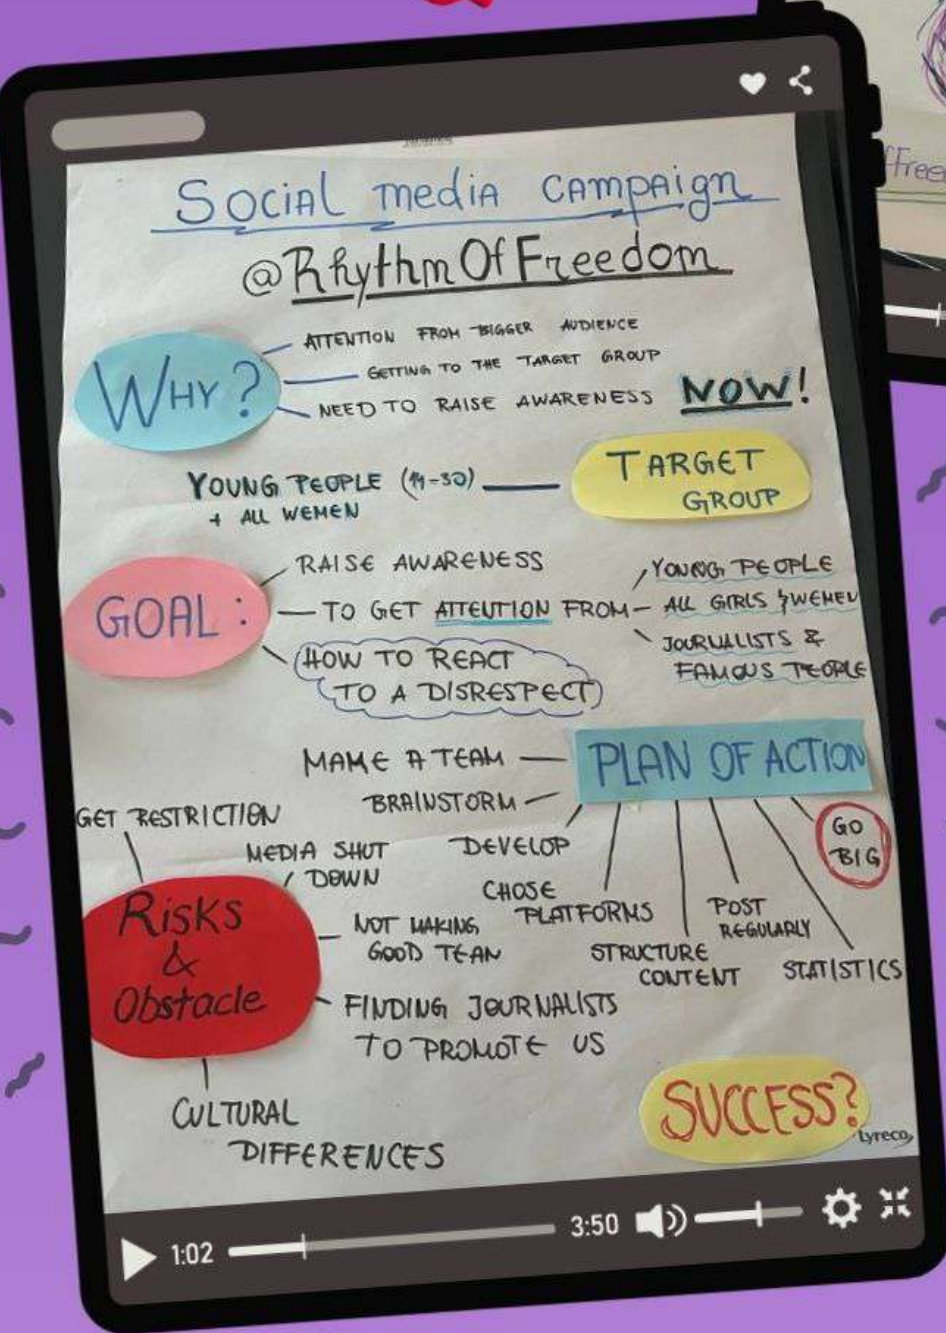 Social media campaign
@RhythmOfFreedom
WHY?
ATTENTION FROM BIGGER AUDIENCE
GETTING TO THE TARGET GROUP
NEED TO RAISE AWARENESS NOW!
YOUNG PEOPLE
+ ALL WEMEN
TARGET
GROUP
GOAL:
RAISE AWARENESS
TO GET ATTEUTION FROM
YOUNG PEOPLE
ALL GIRLS & WEMEN
JOURNALISTS &
FAMOUS PEOPLE
HOW TO REACT
TO A DISRESPECT
PLAN OF ACTION
MAKE A TEAM
BRAINSTORM
DEVELOP
CHOSE
PLATFORMS
STRUCTURE
CONTENT
POST
REGULARLY
STATISTICS
GO
BIG
Risks
&
Obstacle
GET RESTRICTION
MEDIA SHUT
DOWN
NOT MAKING
GOOD TEAN
FINDING JOURNALISTS
TO PROMOTE US
CULTURAL
DIFFERENCES
SUCCESS?
Lyreco
1:02
3:50